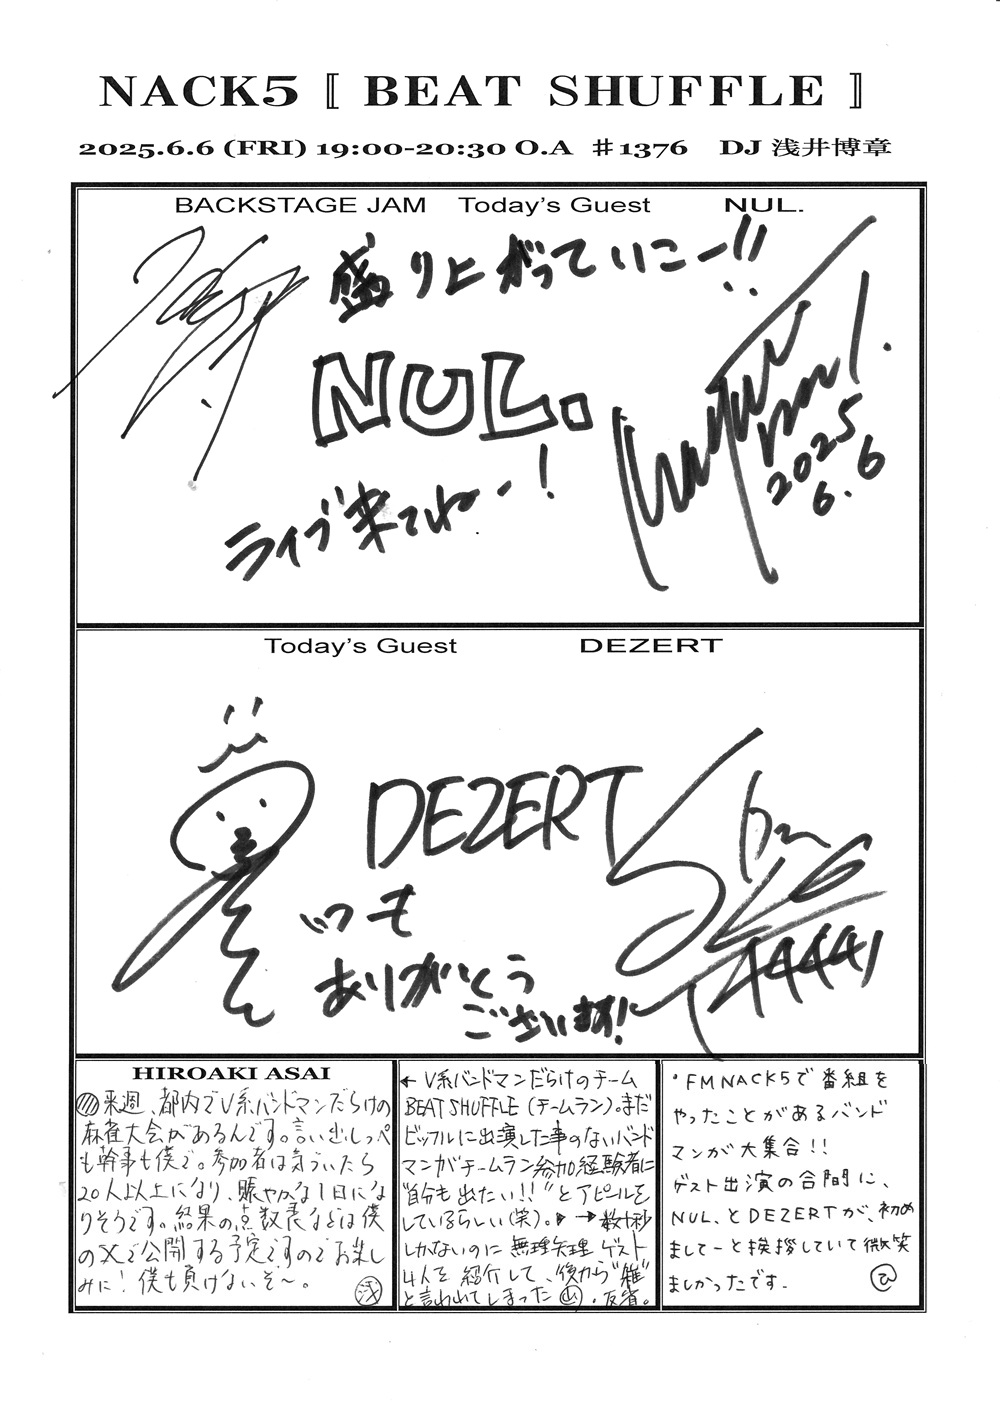 NACK5 〚 BEAT SHUFFLE 〛
2025.6.6 (FRI) 19:00-20:30 O.A ♯1376 DJ 浅井博章
BACKSTAGE JAM Today's Guest NUL.
盛り上がっていこー!!
NUL.
2025
6.6
ライブ来てねー!
Today's Guest DEZERT
DEZERT
いつも
ありがとう
ございます!
HIROAKI ASAI
来週、都内でV系バンドマンだらけの
麻雀大会があるんです。言い出しっぺ
も幹事も僕で。参加者は気づいたら
20人以上になり、賑やかな1日にな
りそうです。結果の点数表などは僕
のXで公開する予定ですのでお楽し
みに!僕も負けないぞ〜。 浅
← V系バンドマンだらけのチーム
BEAT SHUFFLE (チームラン)。まだ
ビッフルに出演した事のないバンド
マンがチームラン参加経験者に
"自分も出たい!!"とアピールを
しているらしい(笑)。 → 数十秒
しかないのに無理矢理ゲスト
4人を紹介して、後から"雑"
と言われてしまった 山 。反省。
・FM NACK5で番組を
やったことがあるバンド
マンが大集合!!
ゲスト出演の合間に、
NUL.とDEZERTが、初め
ましてーと挨拶していて微笑
ましかったです. ひ